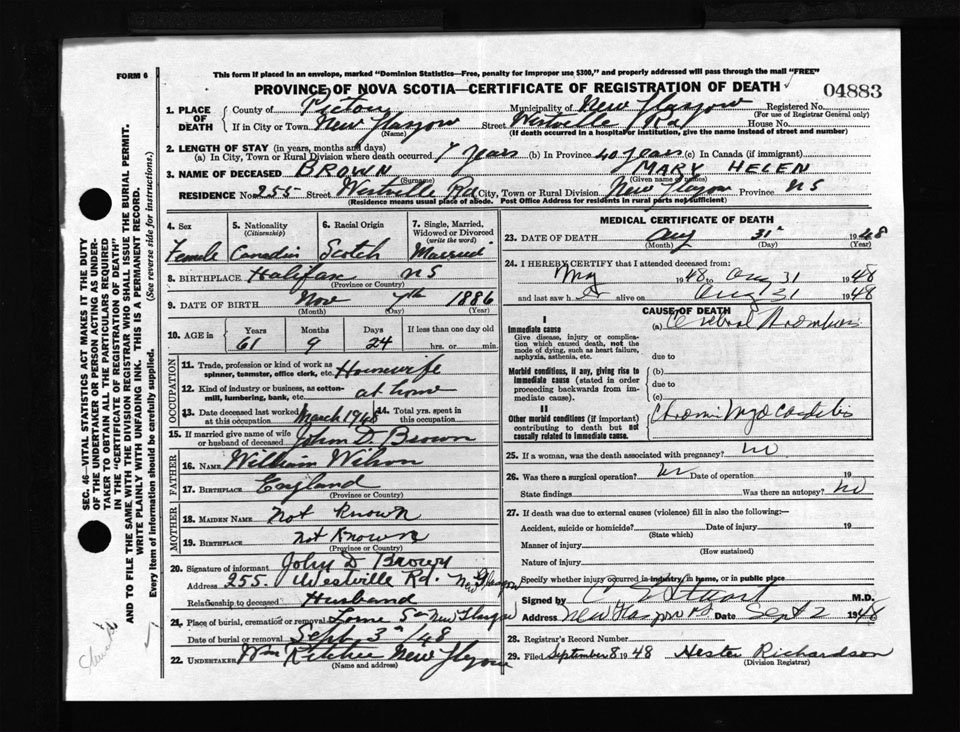 FORM 6
This form if placed in an envelope, marked "Dominion Statistics—Free, penalty for improper use $300," and properly addressed will pass through the mail "FREE"
PROVINCE OF NOVA SCOTIA—CERTIFICATE OF REGISTRATION OF DEATH 04883
1. PLACE OF DEATH
County of Pictou Municipality of New Glasgow Registered No.
(For use of Registrar General only)
If in City or Town New Glasgow Street Westville Rd House No.
(Name) (If death occurred in a hospital or institution, give the name instead of street and number)
2. LENGTH OF STAY (in years, months and days)
(a) In City, Town or Rural Division where death occurred 7 years (b) In Province 40 years (c) In Canada (if immigrant)
3. NAME OF DECEASED BROWN MARY HELEN
(Surname) (Given name or names)
RESIDENCE No. 255 Street Westville Rd City, Town or Rural Division New Glasgow Province NS
(Residence means usual place of abode. Post Office Address for residents in rural parts not sufficient)
4. Sex Female
5. Nationality (Citizenship) Canadin
6. Racial Origin Scotch
7. Single, Married, Widowed or Divorced (write the word) Married
8. BIRTHPLACE Halifax NS
(Province or Country)
9. DATE OF BIRTH Nov 7th 1886
(Month) (Day) (Year)
10. AGE in Years Months Days If less than one day old
61 9 24 hrs. or min.
OCCUPATION
11. Trade, profession or kind of work as spinner, teamster, office clerk, etc. Housewife
12. Kind of industry or business, as cotton-mill, lumbering, bank, etc. at home
13. Date deceased last worked at this occupation March 1948 14. Total yrs. spent in this occupation
15. If married give name of wife or husband of deceased John D. Brown
FATHER
16. NAME William Wilson
17. BIRTHPLACE England
(Province or Country)
MOTHER
18. MAIDEN NAME Not Known
19. BIRTHPLACE Not Known
(Province or Country)
20. Signature of informant John D Brown
Address 255. Westville Rd. New Glasgow
Relationship to deceased Husband
21. Place of burial, cremation or removal Lorne St New Glasgow
Date of burial or removal Sept 3rd /48
22. UNDERTAKER Wm Ritchie New Glasgow
(Name and address)
MEDICAL CERTIFICATE OF DEATH
23. DATE OF DEATH Aug 31st 1948
(Month) (Day) (Year)
24. I HEREBY CERTIFY that I attended deceased from:
1948 to Aug 31 1948
and last saw her alive on Aug 31 1948
CAUSE OF DEATH
I
Immediate cause
Give disease, injury or complication which caused death, not the mode of dying, such as heart failure, asphyxia, asthenia, etc.
(a) Cerebral Thrombosis
due to
Morbid conditions, if any, giving rise to immediate cause (stated in order proceeding backwards from immediate cause).
(b)
due to
(c)
II
Other morbid conditions (if important) contributing to death but not causally related to immediate cause.
Chronic Myocarditis
25. If a woman, was the death associated with pregnancy? no
26. Was there a surgical operation? no Date of operation 19
State findings Was there an autopsy? no
27. If death was due to external causes (violence) fill in also the following:—
Accident, suicide or homicide? Date of injury 19
(State which)
Manner of injury
(How sustained)
Nature of injury
Specify whether injury occurred in industry, in home, or in public place
Signed by M.D.
Address New Glasgow NS Date Sept 2 1948
28. Registrar's Record Number
29. Filed September 8 1948 Hester Richardson
(Division Registrar)
SEC. 46—VITAL STATISTICS ACT MAKES IT THE DUTY
OF THE UNDERTAKER OR PERSON ACTING AS UNDERTAKER TO OBTAIN ALL THE PARTICULARS REQUIRED
IN THE "CERTIFICATE OF REGISTRATION OF DEATH"
AND TO FILE THE SAME WITH THE DIVISION REGISTRAR WHO SHALL ISSUE THE BURIAL PERMIT.
WRITE PLAINLY WITH UNFADING INK. THIS IS A PERMANENT RECORD.
Every item of information should be carefully supplied. (See reverse side for instructions.)